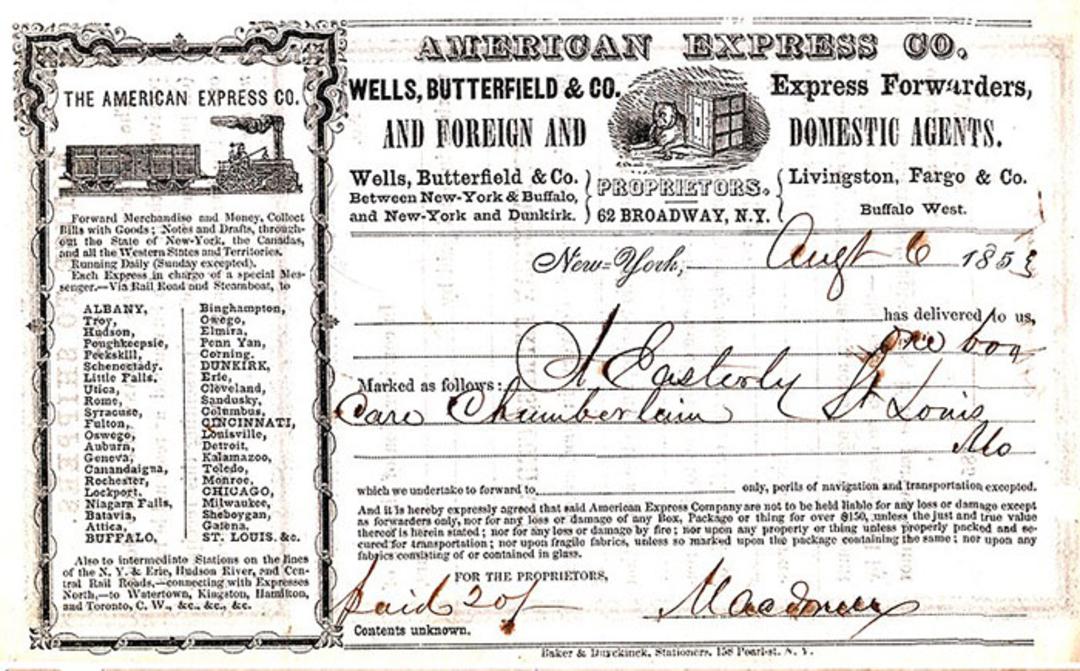 THE AMERICAN EXPRESS CO.
Forward Merchandise and Money, Collect
Bills with Goods; Notes and Drafts, through-
out the State of New-York, the Canadas,
and all the Western States and Territories.
Running Daily (Sunday excepted).
Each Express in charge of a special Mes-
senger.—Via Rail Road and Steamboat, to
ALBANY,
Troy,
Hudson,
Poughkeepsie,
Peekskill,
Schenectady.
Little Falls.
Utica,
Rome,
Syracuse,
Fulton,
Oswego,
Auburn,
Geneva,
Canandaigna,
Rochester,
Lockport.
Niagara Falls,
Batavia,
Attica,
BUFFALO,
Binghampton,
Owego,
Elmira,
Penn Yan,
Corning.
DUNKIRK,
Erie,
Cleveland,
Sandusky,
Columbus,
CINCINNATI,
Louisville,
Detroit,
Kalamazoo,
Toledo,
Monroe,
CHICAGO,
Milwaukee,
Sheboygan,
Galena,
ST. LOUIS, &c.
Also to intermediate Stations on the lines
of the N. Y. & Erie, Hudson River, and Cen-
tral Rail Roads,—connecting with Expresses
North,—to Watertown, Kingston, Hamilton,
and Toronto, C. W., &c., &c., &c.
AMERICAN EXPRESS CO.
WELLS, BUTTERFIELD & CO. Express Forwarders,
AND FOREIGN AND DOMESTIC AGENTS.
Wells, Butterfield & Co.
Between New-York & Buffalo,
and New-York and Dunkirk.
PROPRIETORS,
62 BROADWAY, N.Y.
Livingston, Fargo & Co.
Buffalo West.
New-York, Augt 6 1853
has delivered to us,
one box
Marked as follows: A. Easterly St Louis
Care Chamberlain Mo
which we undertake to forward to only, perils of navigation and transportation excepted.
And it is hereby expressly agreed that said American Express Company are not to be held liable for any loss or damage except
as forwarders only, nor for any loss or damage of any Box, Package or thing for over $150, unless the just and true value
thereof is herein stated; nor for any loss or damage by fire; nor upon any property or thing unless properly packed and se-
cured for transportation; nor upon fragile fabrics, unless so marked upon the package containing the same; nor upon any
fabrics consisting of or contained in glass.
FOR THE PROPRIETORS,
paid 20/
Contents unknown.
Baker & Duyckinck, Stationers, 158 Pearl-st. N. Y.